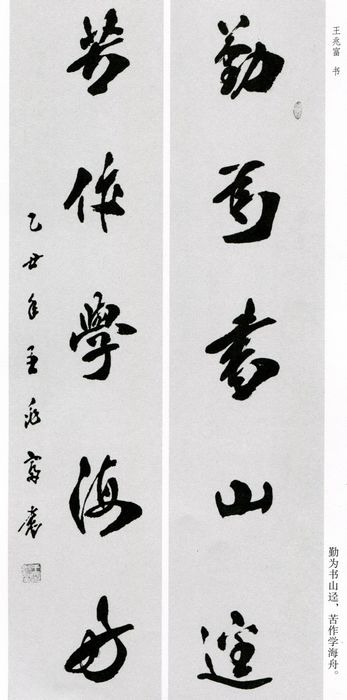 王兆富 书
勤為書山逕
苦作學海舟
乙丑年王兆富
勤为书山迳，苦作学海舟。